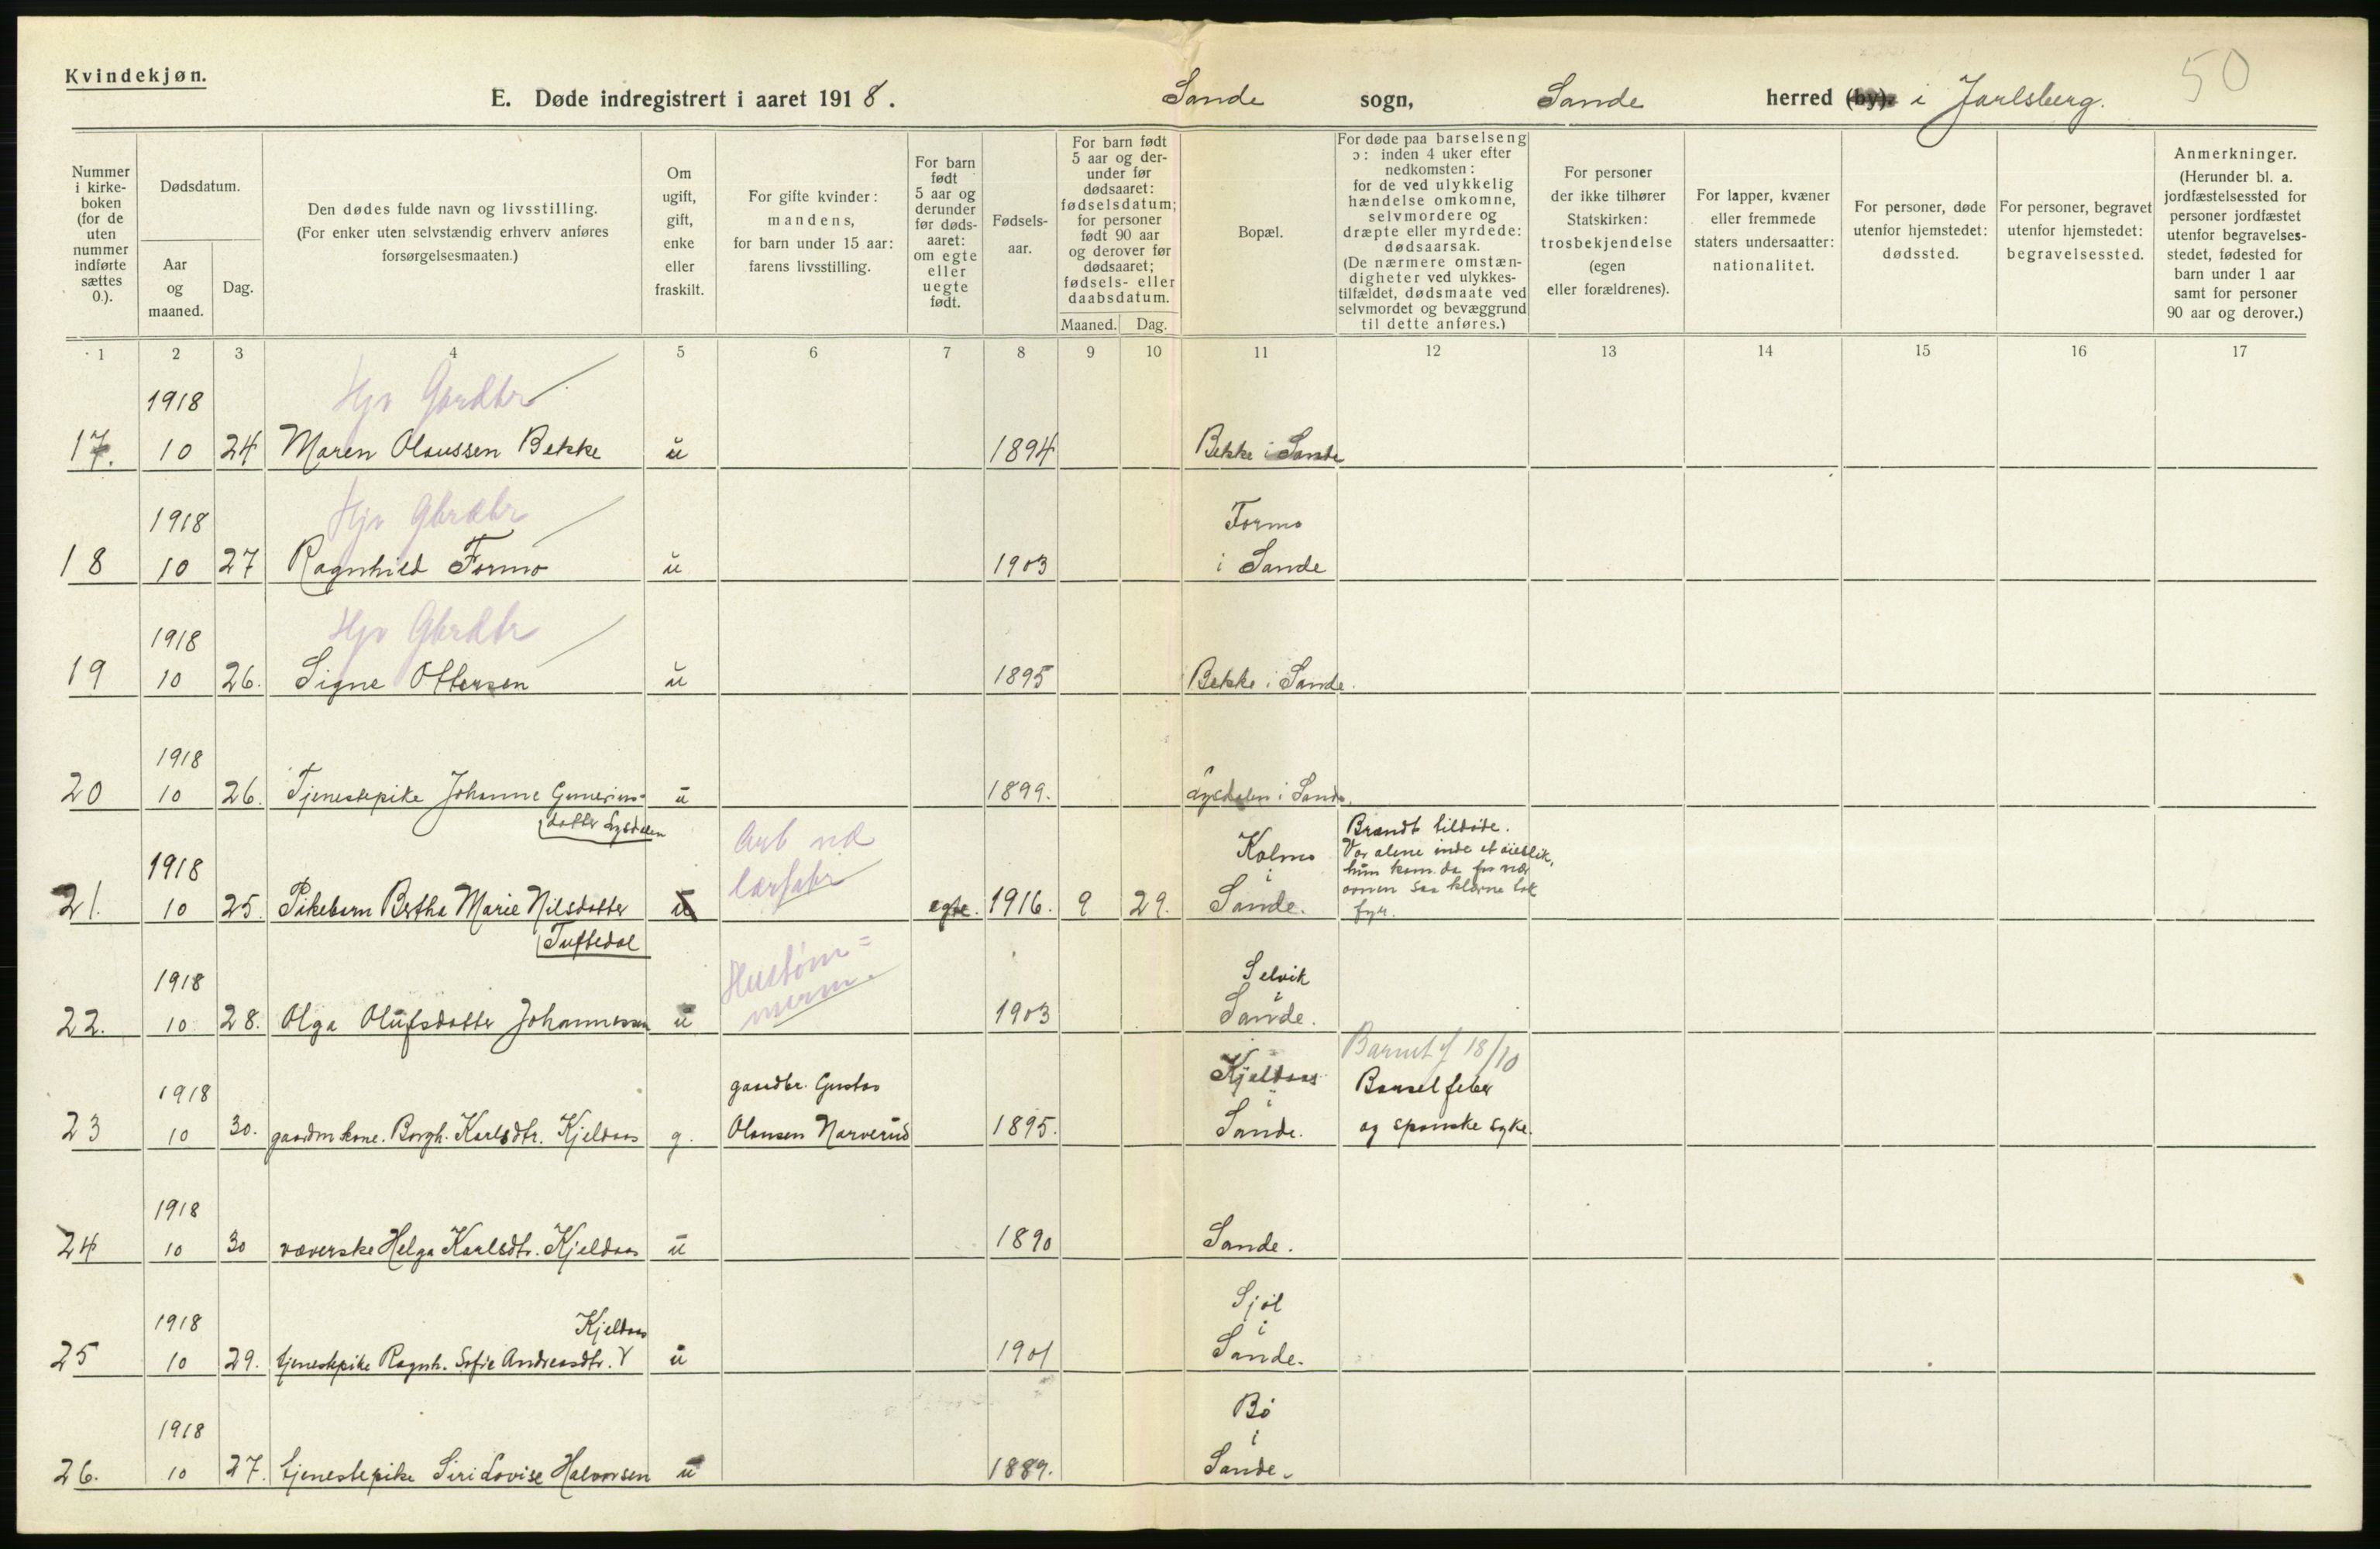 Kvindekjøn.
50
E. Døde indregistrert i aaret 1918. Sande sogn, Sande herred (by). i Jarlsberg.
Nummer i kirke- boken (for de uten nummer indførte sættes 0.).
Dødsdatum.
Aar og maaned.
Dag.
Den dødes fulde navn og livsstilling.
(For enker uten selvstændig erhverv anføres
forsørgelsesmaaten.)
Om ugift, gift, enke eller fraskilt.
For gifte kvinder:
mandens,
for barn under 15 aar:
farens livsstilling.
For barn født 5 aar og derunder før døds- aaret: om egte eller uegte født.
Fødsels- aar.
For barn født 5 aar og der- under før dødsaaret: fødselsdatum; for personer født 90 aar og derover før dødsaaret; fødsels- eller daabsdatum.
Maaned. Dag.
Bopæl.
For døde paa barselseng
ɔ: inden 4 uker efter
nedkomsten:
for de ved ulykkelig
hændelse omkomne,
selvmordere og
dræpte eller myrdede:
dødsaarsak.
(De nærmere omstæn-
digheter ved ulykkes-
tilfældet, dødsmaate ved
selvmordet og bevæggrund
til dette anføres.)
For personer
der ikke tilhører
Statskirken:
trosbekjendelse
(egen
eller forældrenes).
For lapper, kvæner
eller fremmede
staters undersaatter:
nationalitet.
For personer, døde
utenfor hjemstedet:
dødssted.
For personer, begravet
utenfor hjemstedet:
begravelsessted.
Anmerkninger.
(Herunder bl. a.
jordfæstelsessted for
personer jordfæstet
utenfor begravelses-
stedet, fødested for
barn under 1 aar
samt for personer
90 aar og derover.)
1 2 3 4 5 6 7 8 9 10 11 12 13 14 15 16 17
1918 Hjv Gardbr
17. 10 24 Maren Olaussen Bekke u 1894 Bekke i Sande
1918 Hjv Gbrdbr Formo
18 10 27 Ragnhild Formo u 1903 i Sande
1918 Hjv Gbrdbr
19 10 26. Signe Ottersen u 1895 Bekke i Sande.
1918
20 10 26. Tjenestepike Johanne Gunerius- u 1899. Lysdalen i Sande.
datter Lysdalen
1918 Arb ved Kolmo i Brændt tildøde.
Var alene inde et øieblik,
hun kom da for nær
ovnen saa klærne tok
fyr.
21. 10 25. Pikebarn Bertha Marie Nilsdatter u egte. 1916. 9 29. Sande.
Tuftedal
1918 Hustøm= Selvik i
22. 10 28. Olga Olufsdatter Johannessen u 1903 Sande.
Barnet f 18/10
1918 gaardbr. Gustav Kjeldaas i Barselfeber
23 10 30. gaardm kone. Borgh. Karlsdtr. Kjeldaas g. Olausen Narverud 1895. Sande. og spanske syke.
1918
24 10 30 væverske Helga Karlsdtr. Kjeldaas u 1890 Sande.
1918 Kjeldaas Sjøl i
25 10 29. tjenestepike Ragnh. Sofie Andreasdtr. u 1901 Sande.
1918 Bø i
26. 10 27. tjenestepike Siri Lovise Halvorsen u 1889. Sande.